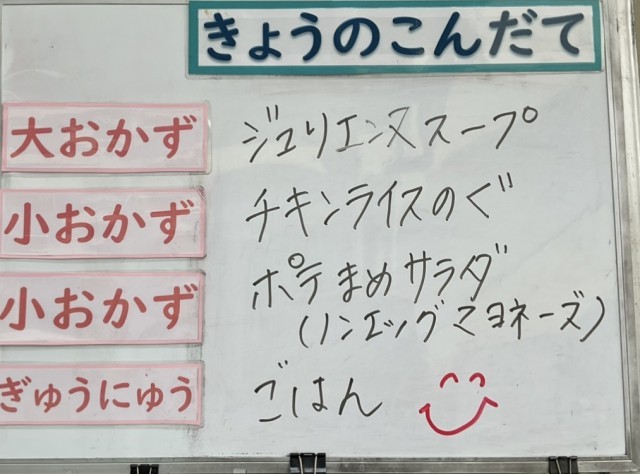 きょうのこんだて
大おかず ジュリエンヌスープ
小おかず チキンライスのぐ
小おかず ポテまめサラダ
(ノンエッグマヨネーズ)
ぎゅうにゅう ごはん